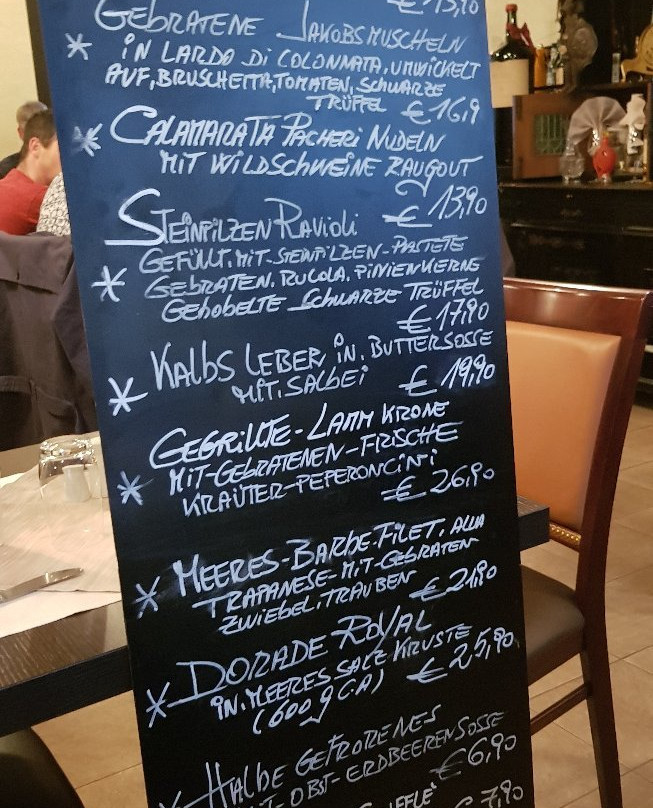 € 15,90
GEBRATENE JAKOBSMUSCHELN
IN LARDO DI COLONNATA, UMWICKELT
AUF, BRUSCHETTA, TOMATEN, SCHWARZE
TRÜFFEL € 16,9
CALAMARATA PACHERI NUDELN
MIT WILDSCHWEINE RAUGOUT
€ 13,90
STEINPILZEN RAVIOLI
GEFÜLLT. MIT-STEINPILZEN-PASTETE
GEBRATEN. RUCOLA. PINIENKERNE
GEHOBELTE SCHWARZE TRÜFFEL
€ 17,90
KALBS LEBER IN. BUTTERSOSSE
MIT. SALBEI € 19,90
GEGRILLTE-LAMM KRONE
MIT-GEBRATENEN-FRISCHE
KRÄUTER-PEPERONCINI
€ 26,90
MEERES-BARBE-FILET. ALLA
TRAPANESE-MIT-GEBRATEN
ZWIEBEL, TRAUBEN € 21,90
DORADE ROYAL
IN. MEERES SALZ-KRUSTE
(600 g CA) € 25,90
HALBE GEFRORENES
OBST-ERDBEERENSOSSE
€ 6,90
€ 7,90